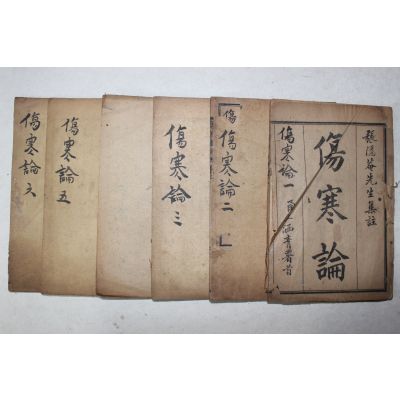 張隱菴先生集註
傷寒論
傷寒論一
傷
傷寒論二
傷寒論三
傷寒論五
傷寒論六